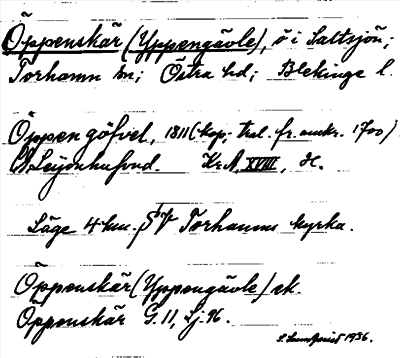 Öppenskär (Yppengävle), ö i Saltsjön;
Torhamn sn; Östra hd; Blekinge l.
Öppen göfvel, 1811 (kop. trol. fr. omkr. 1700)
Leijonhufvud. KrA, XVIII,
Läge 4 km. SV Torhamns kyrka.
Öppenskär (Yppengävle) ek.
Öppenskär G. 11, Lj. 96.
S. Lundquist 1936.